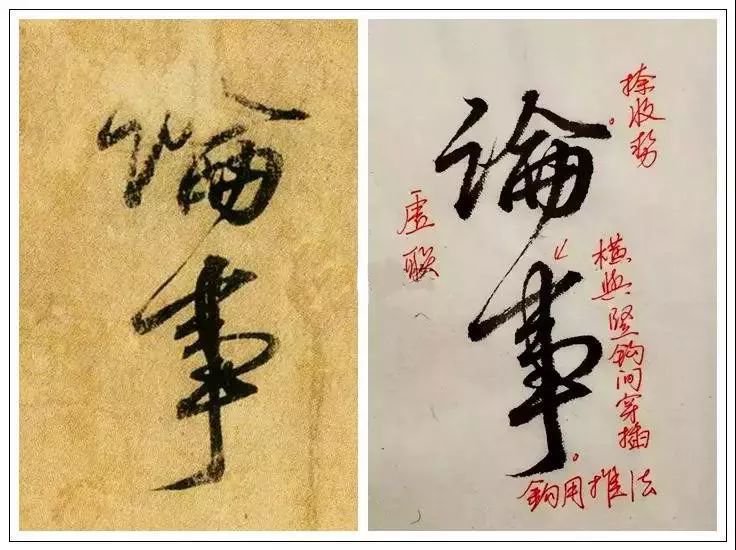 論事
論事
捺收势
虚联
横與竖钩间穿插
钩用推法